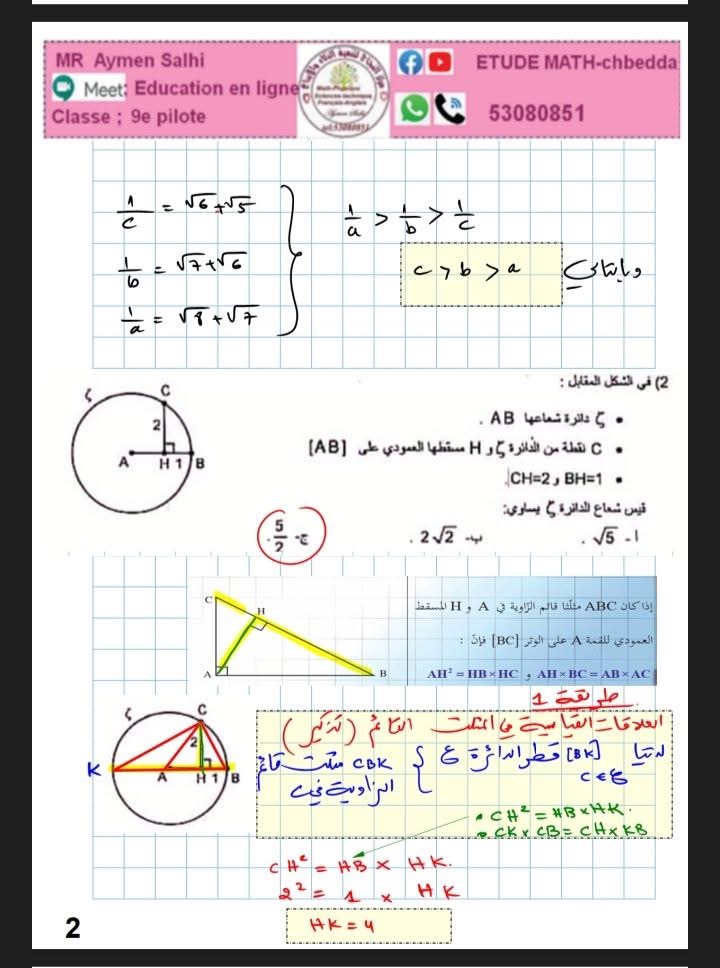 MR Aymen Salhi
Meet: Education en ligne
Classe ; 9e pilote
ETUDE MATH-chbedda
53080851
1/c = √6+√5
1/b = √7+√6
1/a = √8+√7
1/a > 1/b > 1/c
وبالتالي c > b > a
2) في الشكل المقابل :
• ζ دائرة شعاعها AB .
• C نقطة من الدائرة ζ و H مسقطها العمودي على [AB]
• BH=1 و CH=2.
قيس شعاع الدائرة ζ يساوي:
أ- √5 . ب- 2√2 . ج- 5/2 .
ζ
C
2
A H 1 B
إذا كان ABC مثلّثا قائم الزّاوية في A و H المسقط
العمودي للقمة A على الوتر [BC] فإنّ :
AH×BC = AB×AC و AH² = HB×HC
C
H
A
B
طريقة 1
العلاقات القياسية في المثلث القائم (تذكير)
لدينا [BK] قطر الدائرة ζ
C ∈ ζ
CBK مثلث قائم
الزاوية في C
• CH² = HB×HK.
• CK×CB = CH×KB
ζ
C
2
K A H 1 B
CH² = HB × HK.
2² = 1 × HK
HK = 4
2